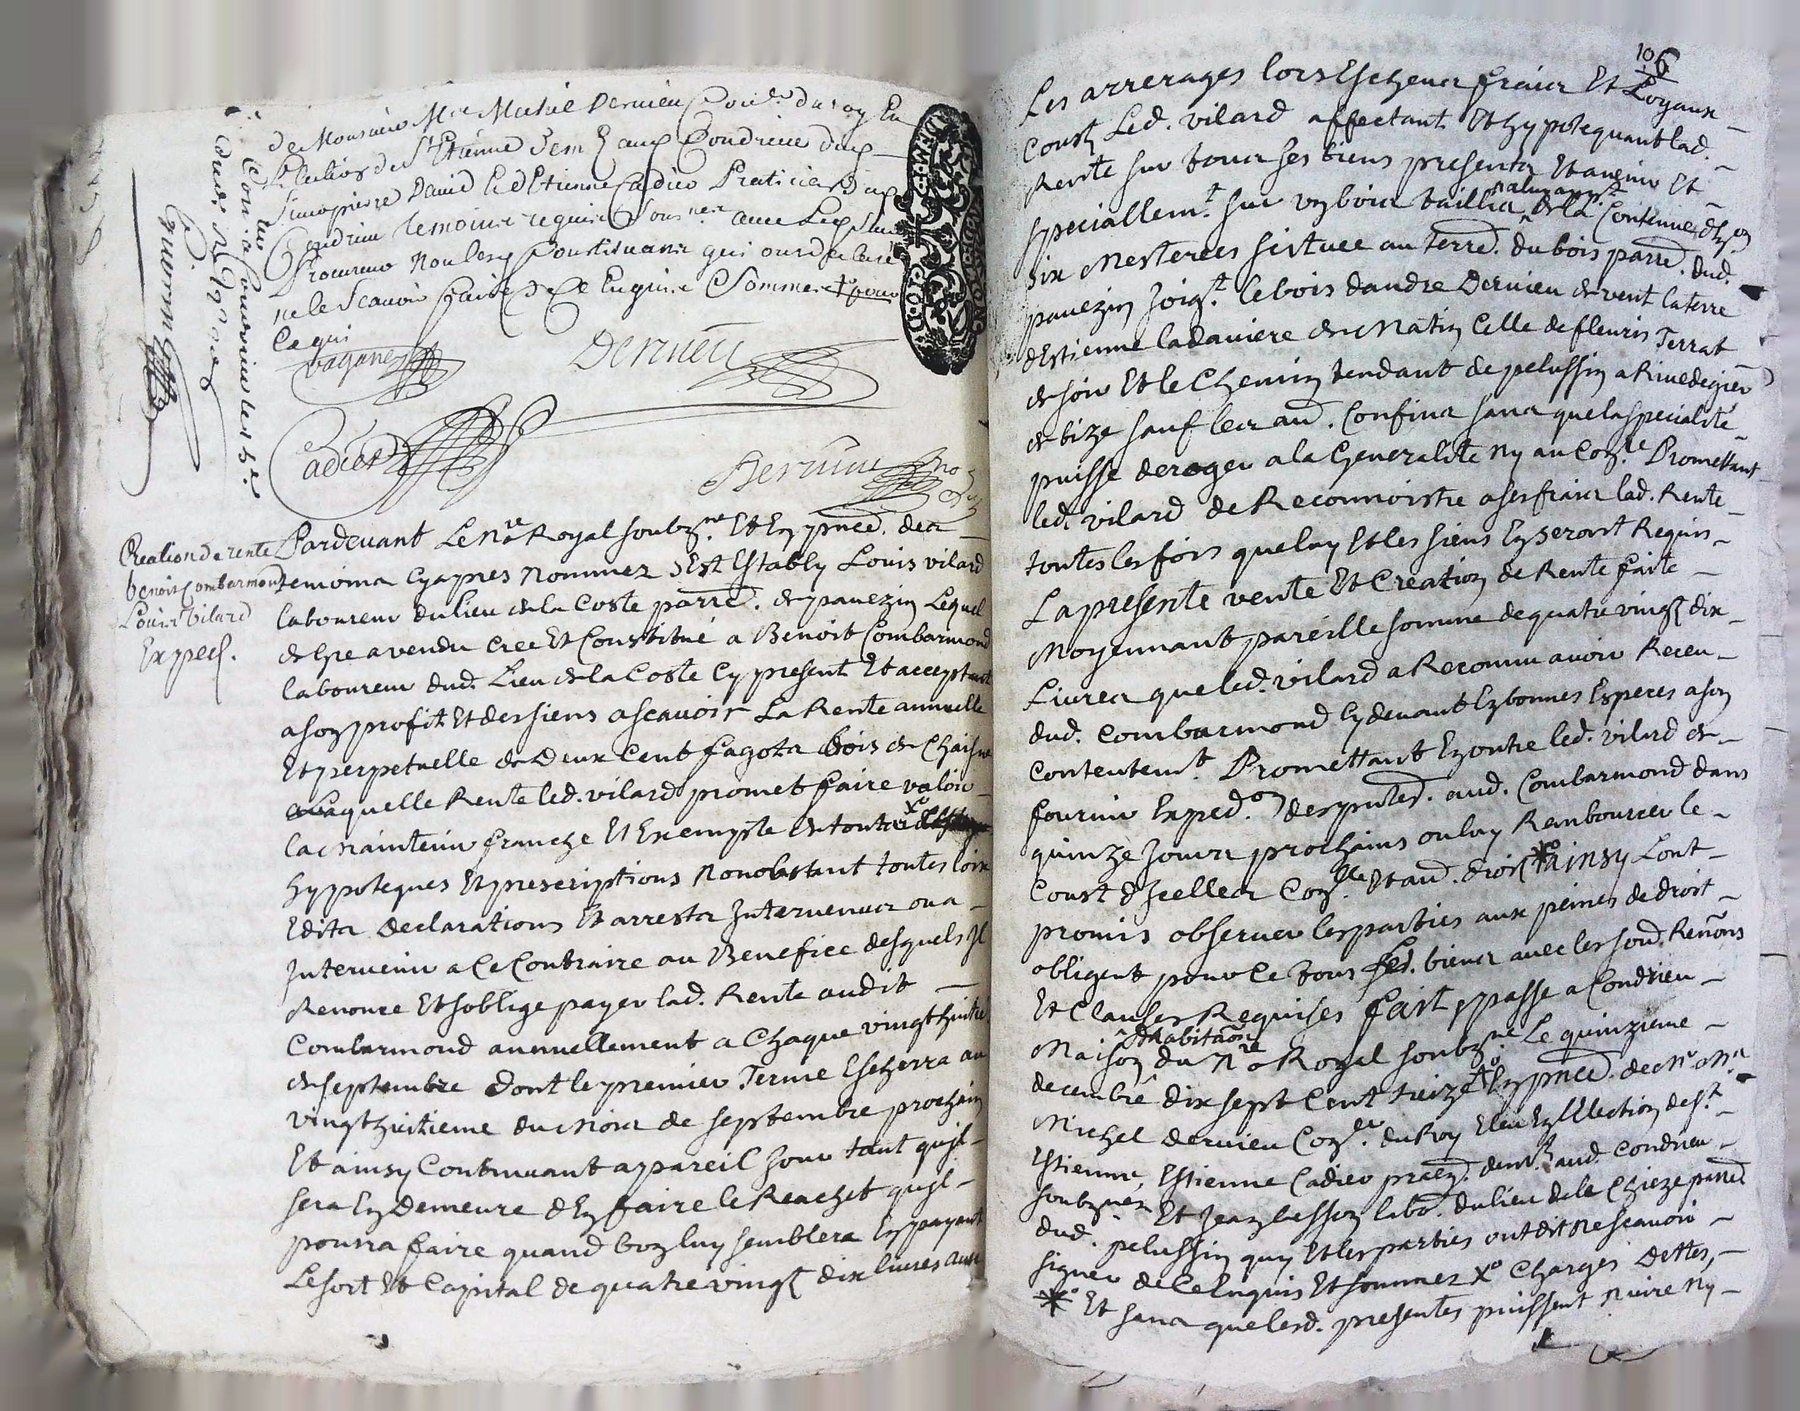 de Monsieur Mre Michel Dervieu Con.er du roy En
L'Election de St Etienne dem.t aud Condrieu
Simo pierre David Et Etienne Cadier Praticiens
Condrieu temoins requis Sous.nez avec Led Sieur
Procureur non les Constituans qui ont declaré
ne le Scavoir faire de ce Enquis & Sommez
Ce qui
vaganey
Dervieu
Cadier
Dervieu no
Creation de rente
benoist Combarmond
Louis Vilard
Exped.
Pardevant Le N.re Royal soubz.né Et En pnce. des
temoins Cyapres nommez s'Est Estably Louis vilard
laboureur du Lieu de la Coste parre. de pavezin Lequel
de gre a vendu cree Et Constitué a Benoit Combarmond
laboureur dud. Lieu de la Coste Cy present Et acceptant
a son profit Et des siens ascavoir La Rente annuelle
Et perpetuelle de Deux Cent fagots bois de Chaisne
laquelle Rente led. vilard promet faire valoir
la maintenir franche Et Exempte de toutes
hypoteques Et prescriptions nonobstant toutes loix
Edits Declarations Et arrests Intervenus ou a
Intervenir a Ce Contraire au Benefice desquels Il
Renonce Et soblige payer lad. Rente audit
Combarmond annuellement a Chaque vingt huitie.
de septembre dont le premier Terme Escherra au
vingt huitieme du mois de septembre prochain
Et ainsy Continuant a pareil Jour tant quil
sera En Demeure d'En faire le Reachet quil
pourra faire quand bon luy semblera En payant
Le sort Et Capital de quatre vingt dix livres avec
106
Les arrerages lors Escheus frais Et Loyaux
Coust Led. vilard affectant Et hypotequant lad.
Rente sur tous ses biens presents Et avenir Et
speciallem.t sur un bois taillis de la Contenue d'Env.on
six mesterées sistuée au terre. du bois parre. dud.
pavezin Joig.t le bois dandre Dervieu de vent la terre
d'Estienne ladaviere de matin Celle de fleuris Terrat
de soir Et le Chemin tendant de pelussin a Rivedegier
de bize sauf leurs au. Confins sans que la specialité
puisse deroger a la Generalité ny au Con.re Promettant
led. vilard de Reconnoistre a ses frais lad. Rente
toutes les fois que luy Et les siens En seront Requis
La presente vente Et Creation de Rente faite
Moyennant pareille somme de quatre vingt dix
Livres que led. vilard a Reconnu avoir Receu
dud. Combarmond Cy devant En bonnes Especes a son
Contentem.t Promettant En outre led. vilard de
fournir Exped.on des pntes. aud. Combarmond dans
quinze Jours prochains ou luy Rembourcer le
Coust d'Icelles Con.lle Et au. droit ainsy Lont
promis observer les parties aux peines de droit
obligent pour Ce tous led. biens avec les soud. Renons
Et Clauses Requises fait & passe a Condrieu
Maison d'habitaon du N.re Royal soubz.né Le quinzieme
decembre dix sept Cent treize En pnce. de Mr. Me.
Michel Dervieu Con.er du Roy Eleu En Election de St.
Estienne, Estienne Cadier pracn. dem.t aud. Condrieu
soubznez Et Jean besson labo. du lieu dela Chieze parre.
dud. pelussin quy Et les parties ont dit ne scavoir
signer de Ce Enquis Et sommez x Charges Dettes,
* Et sans que lesd. presentes puissent nuire ny